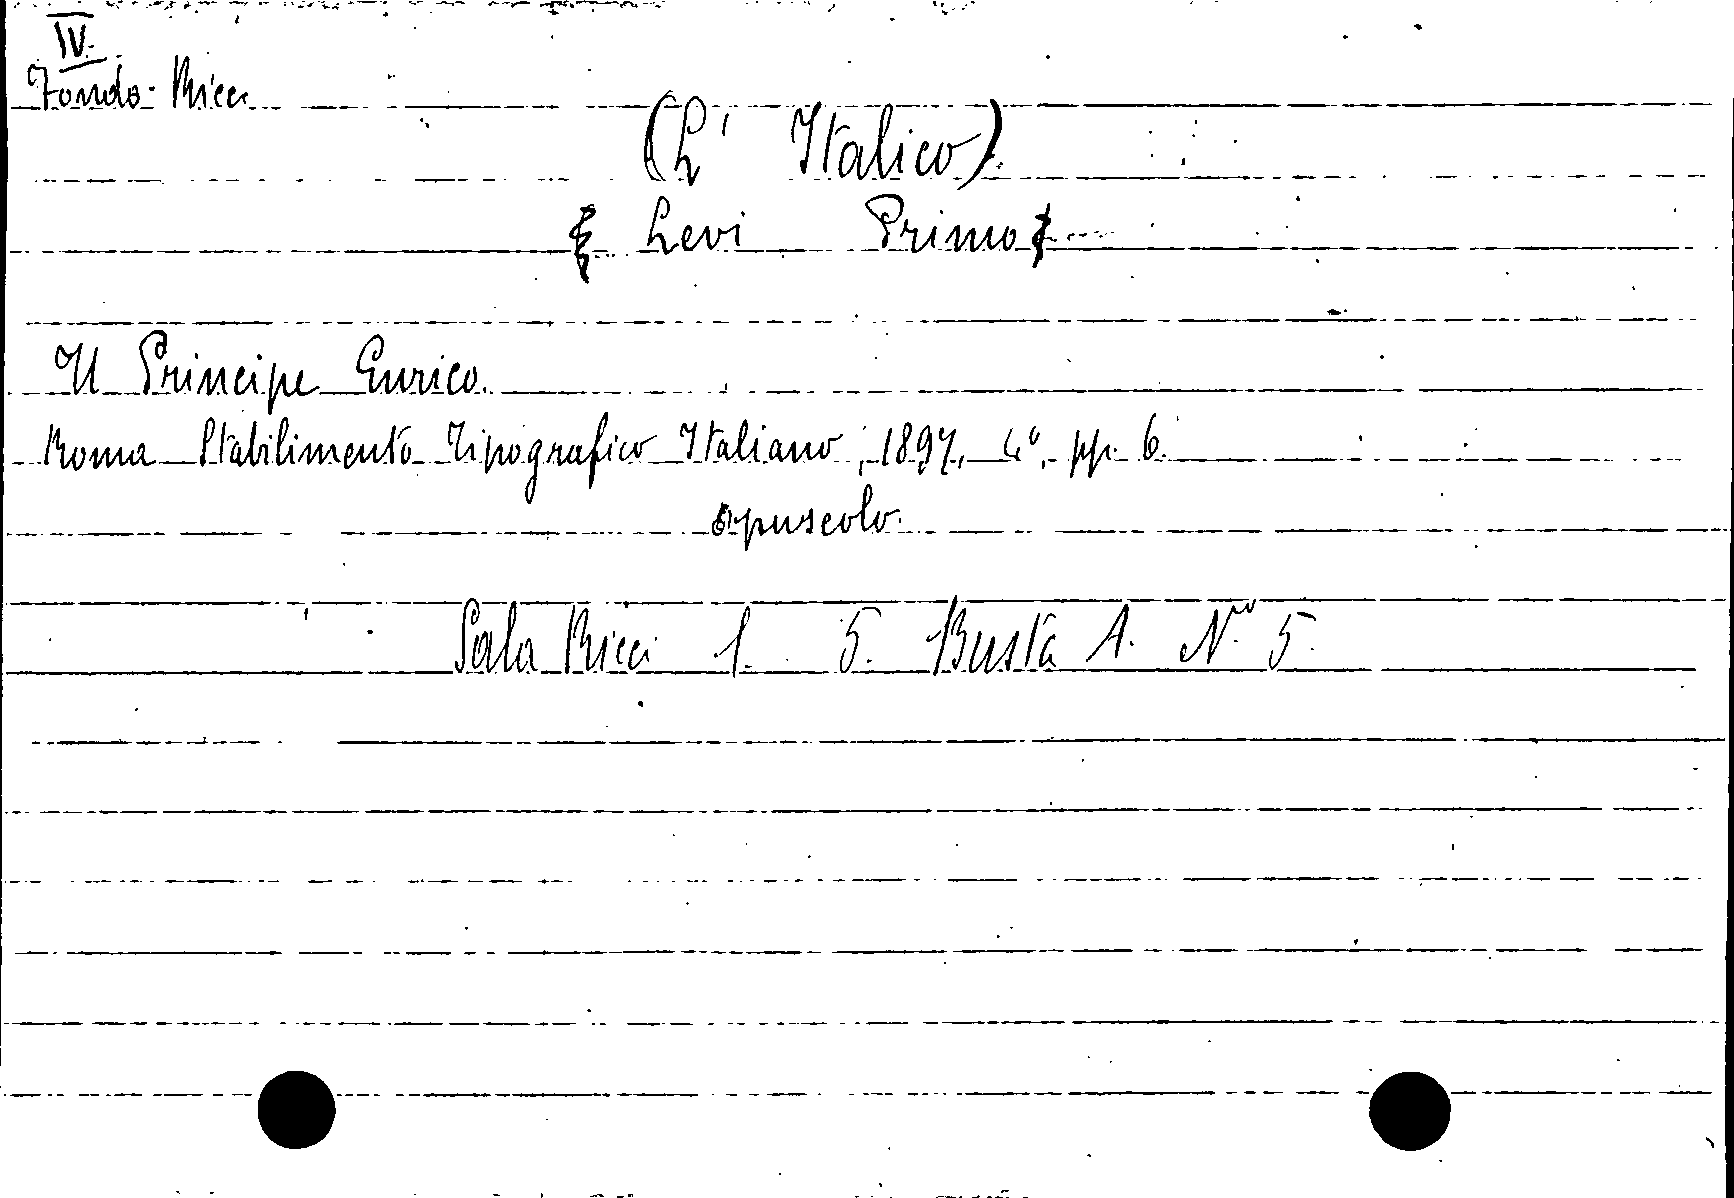 IV.
Fondo Ricci
(L' Italico).
Levi Primo
Il Principe Enrico.
Roma Stabilimento Tipografico Italiano, 1897, 4°, pp. 6.
opuscolo.
Sala Ricci 1. 5. Busta A. N.ro 5.